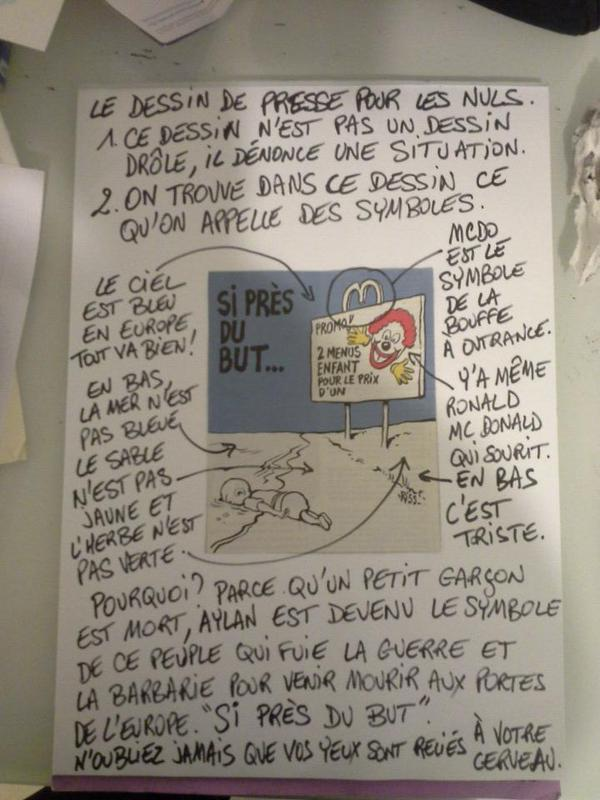 LE DESSIN DE PRESSE POUR LES NULS.
1. CE DESSIN N'EST PAS UN DESSIN
DRÔLE, IL DÉNONCE UNE SITUATION.
2. ON TROUVE DANS CE DESSIN CE
QU'ON APPELLE DES SYMBOLES.
LE CIEL
EST BLEU
EN EUROPE
TOUT VA BIEN!
EN BAS,
LA MER N'EST
PAS BLEUE,
LE SABLE
N'EST PAS
JAUNE ET
L'HERBE N'EST
PAS VERTE.
SI PRÈS
DU
BUT...
M
PROMO!
2 MENUS
ENFANT
POUR LE PRIX
D'UN
RISS
MCDO
EST LE
SYMBOLE
DE LA
BOUFFE
A OUTRANCE.
Y'A MÊME
RONALD
MC DONALD
QUI SOURIT.
EN BAS
C'EST
TRISTE.
POURQUOI? PARCE QU'UN PETIT GARÇON
EST MORT, AYLAN EST DEVENU LE SYMBOLE
DE CE PEUPLE QUI FUIE LA GUERRE ET
LA BARBARIE POUR VENIR MOURIR AUX PORTES
DE L'EUROPE. "SI PRÈS DU BUT".
N'OUBLIEZ JAMAIS QUE VOS YEUX SONT RELIÉS À VOTRE
CERVEAU.